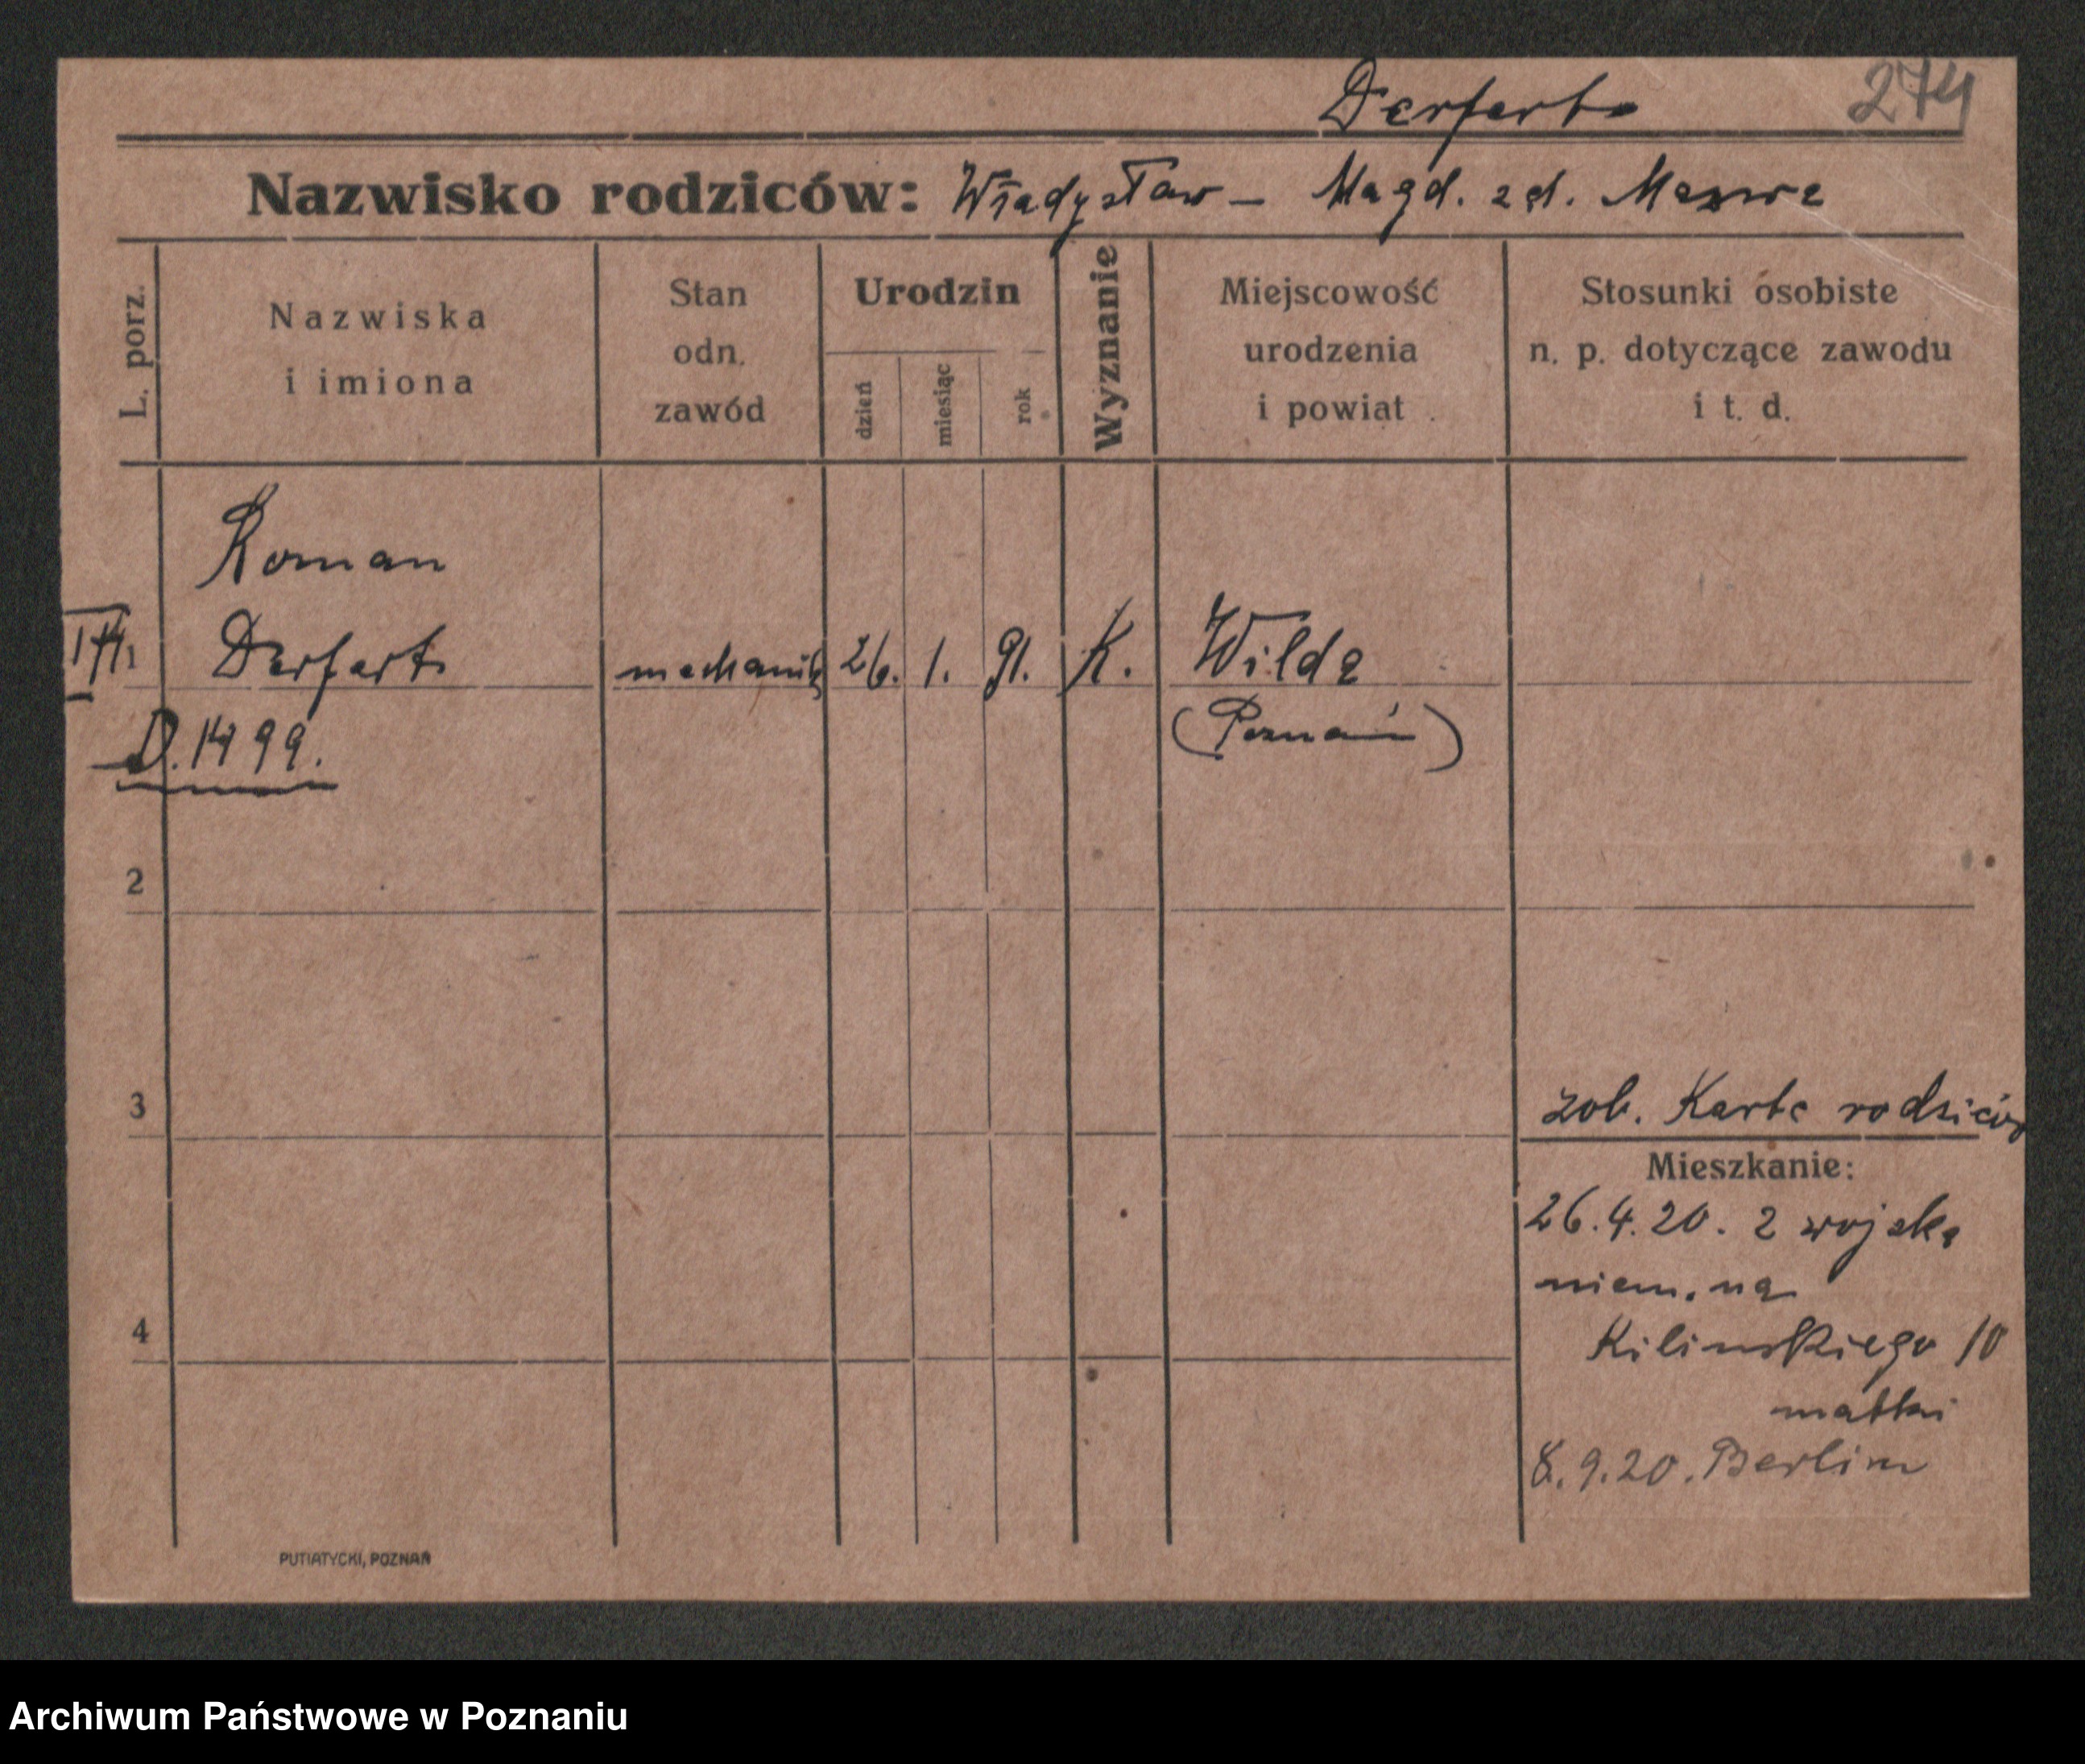 Derfert
274
Nazwisko rodziców: Władysław – Magd. zd.
L. porz.
Nazwiska
i imiona
Stan
odn.
zawód
Urodzin
dzień
miesiąc
rok
Wyznanie
Miejscowość
urodzenia
i powiat
Stosunki osobiste
n. p. dotyczące zawodu
i t. d.
Roman
Derfert mechanik 26. 1. 91. K. Wilda
(Poznań)
D. 1499.
2
3
zob. Karte rodziców
Mieszkanie:
26.4.20. z wojska
niem. na
4
Kilinskiego 10
matki
8.9.20. Berlin
PUTIATYCKI, POZNAŃ
Archiwum Państwowe w Poznaniu